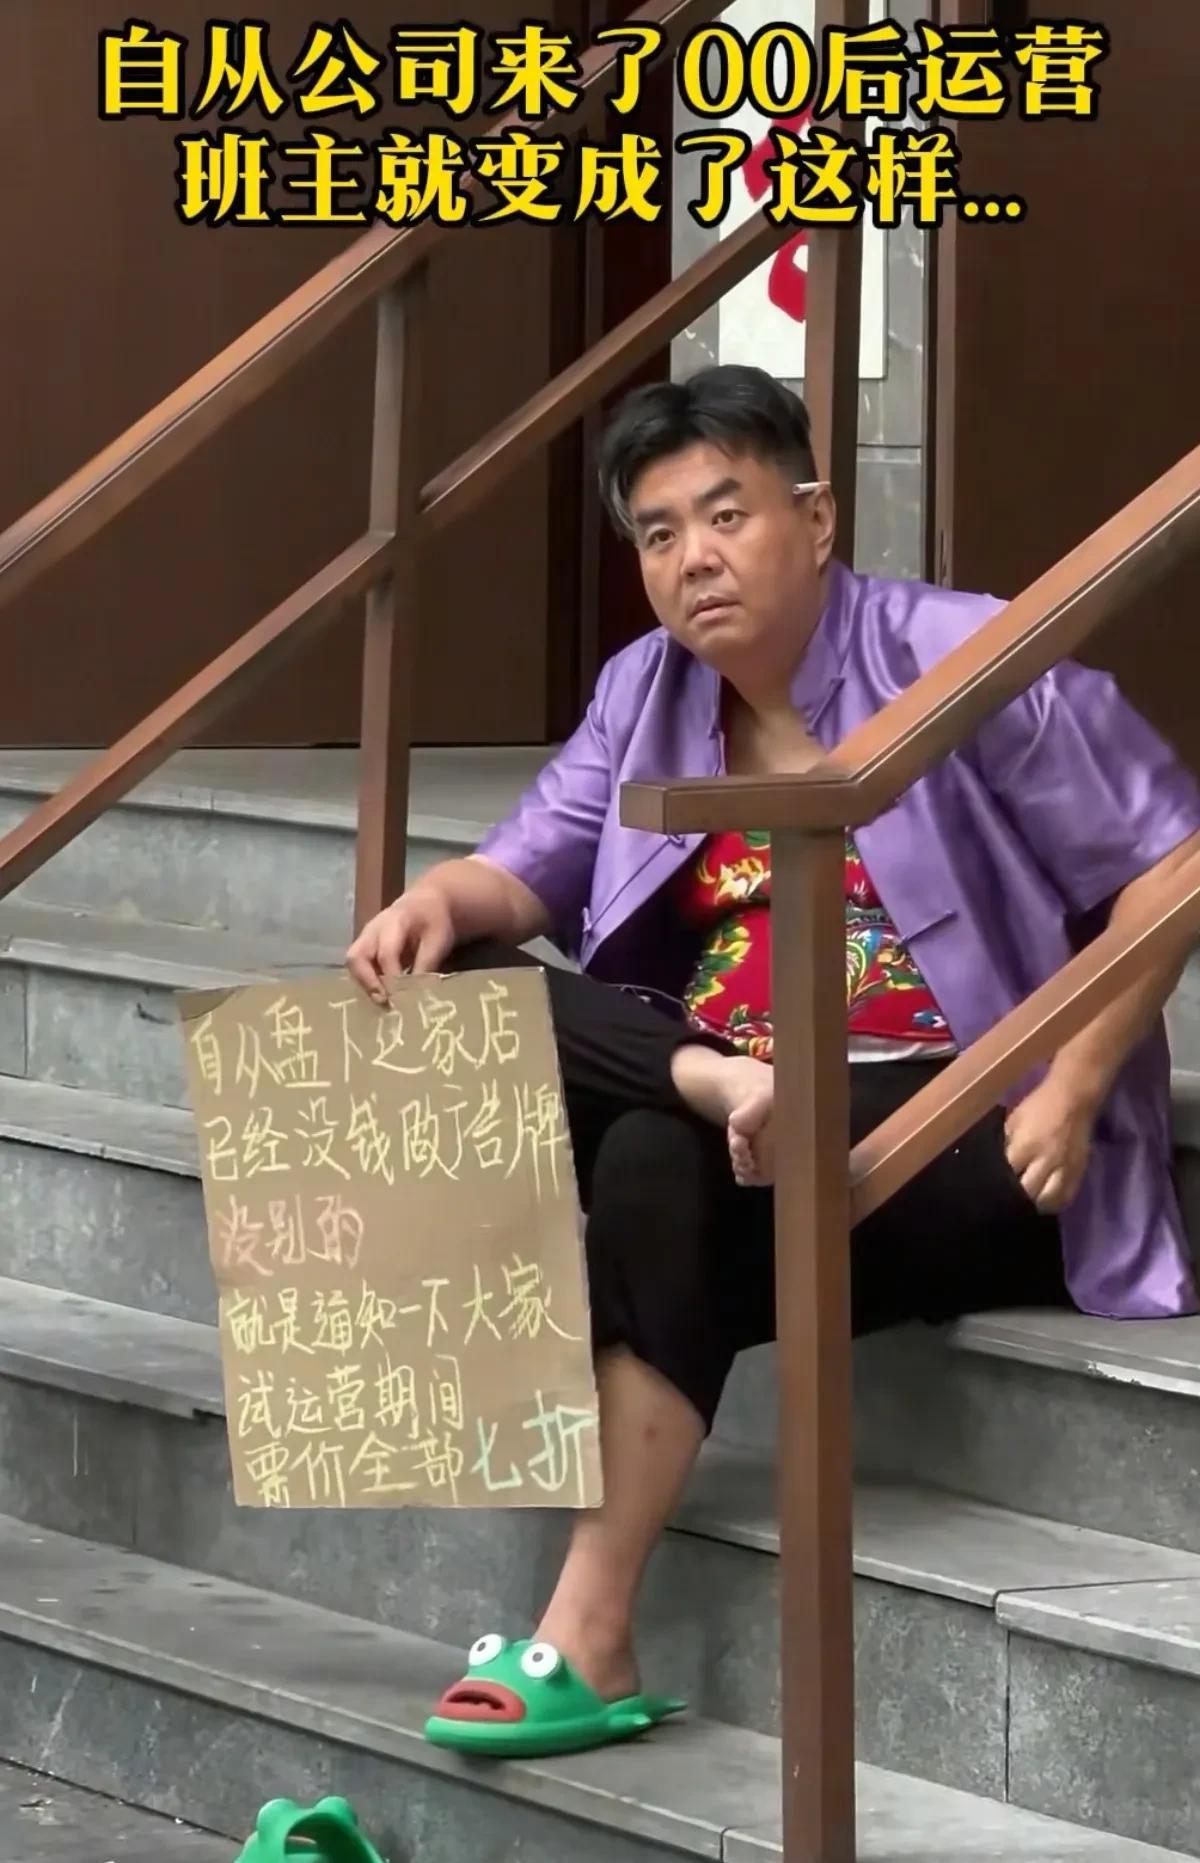 自从公司来了00后运营
班主就变成了这样...
自从盘下这家店
已经没钱做广告牌
没别的
就是通知一下大家
试运营期间
票价全部七折